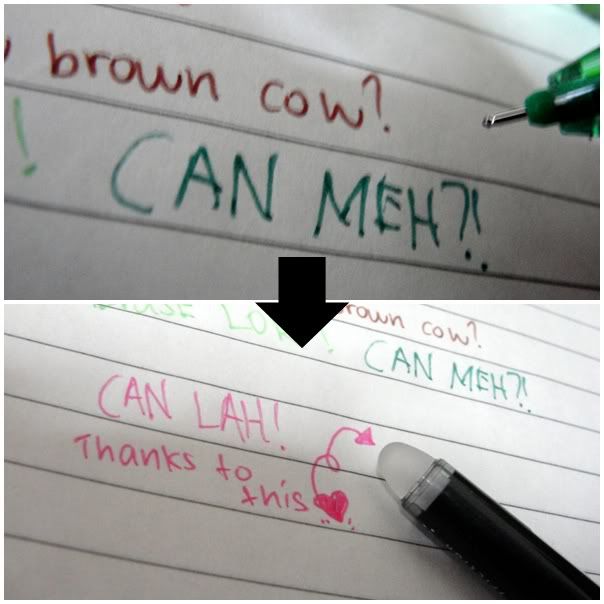 brown cow?
!
CAN MEH?!
brown cow?
CAN MEH?!
CAN LAH!
Thanks to
this